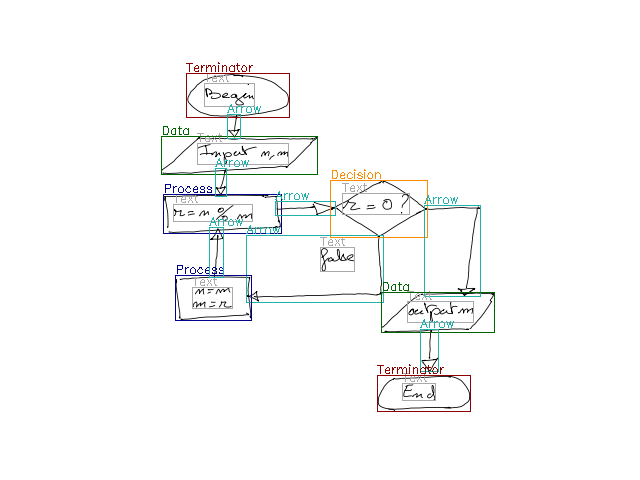 Terminator
Text
Begin
Arrow
Data
Text
Input n, m
Arrow
Process
Text
r = n % m
Arrow
Arrow
Decision
Text
r = 0 ?
Arrow
Arrow
Text
false
Process
Text
n = m
m = r
Data
Text
output m
Arrow
Terminator
Text
End